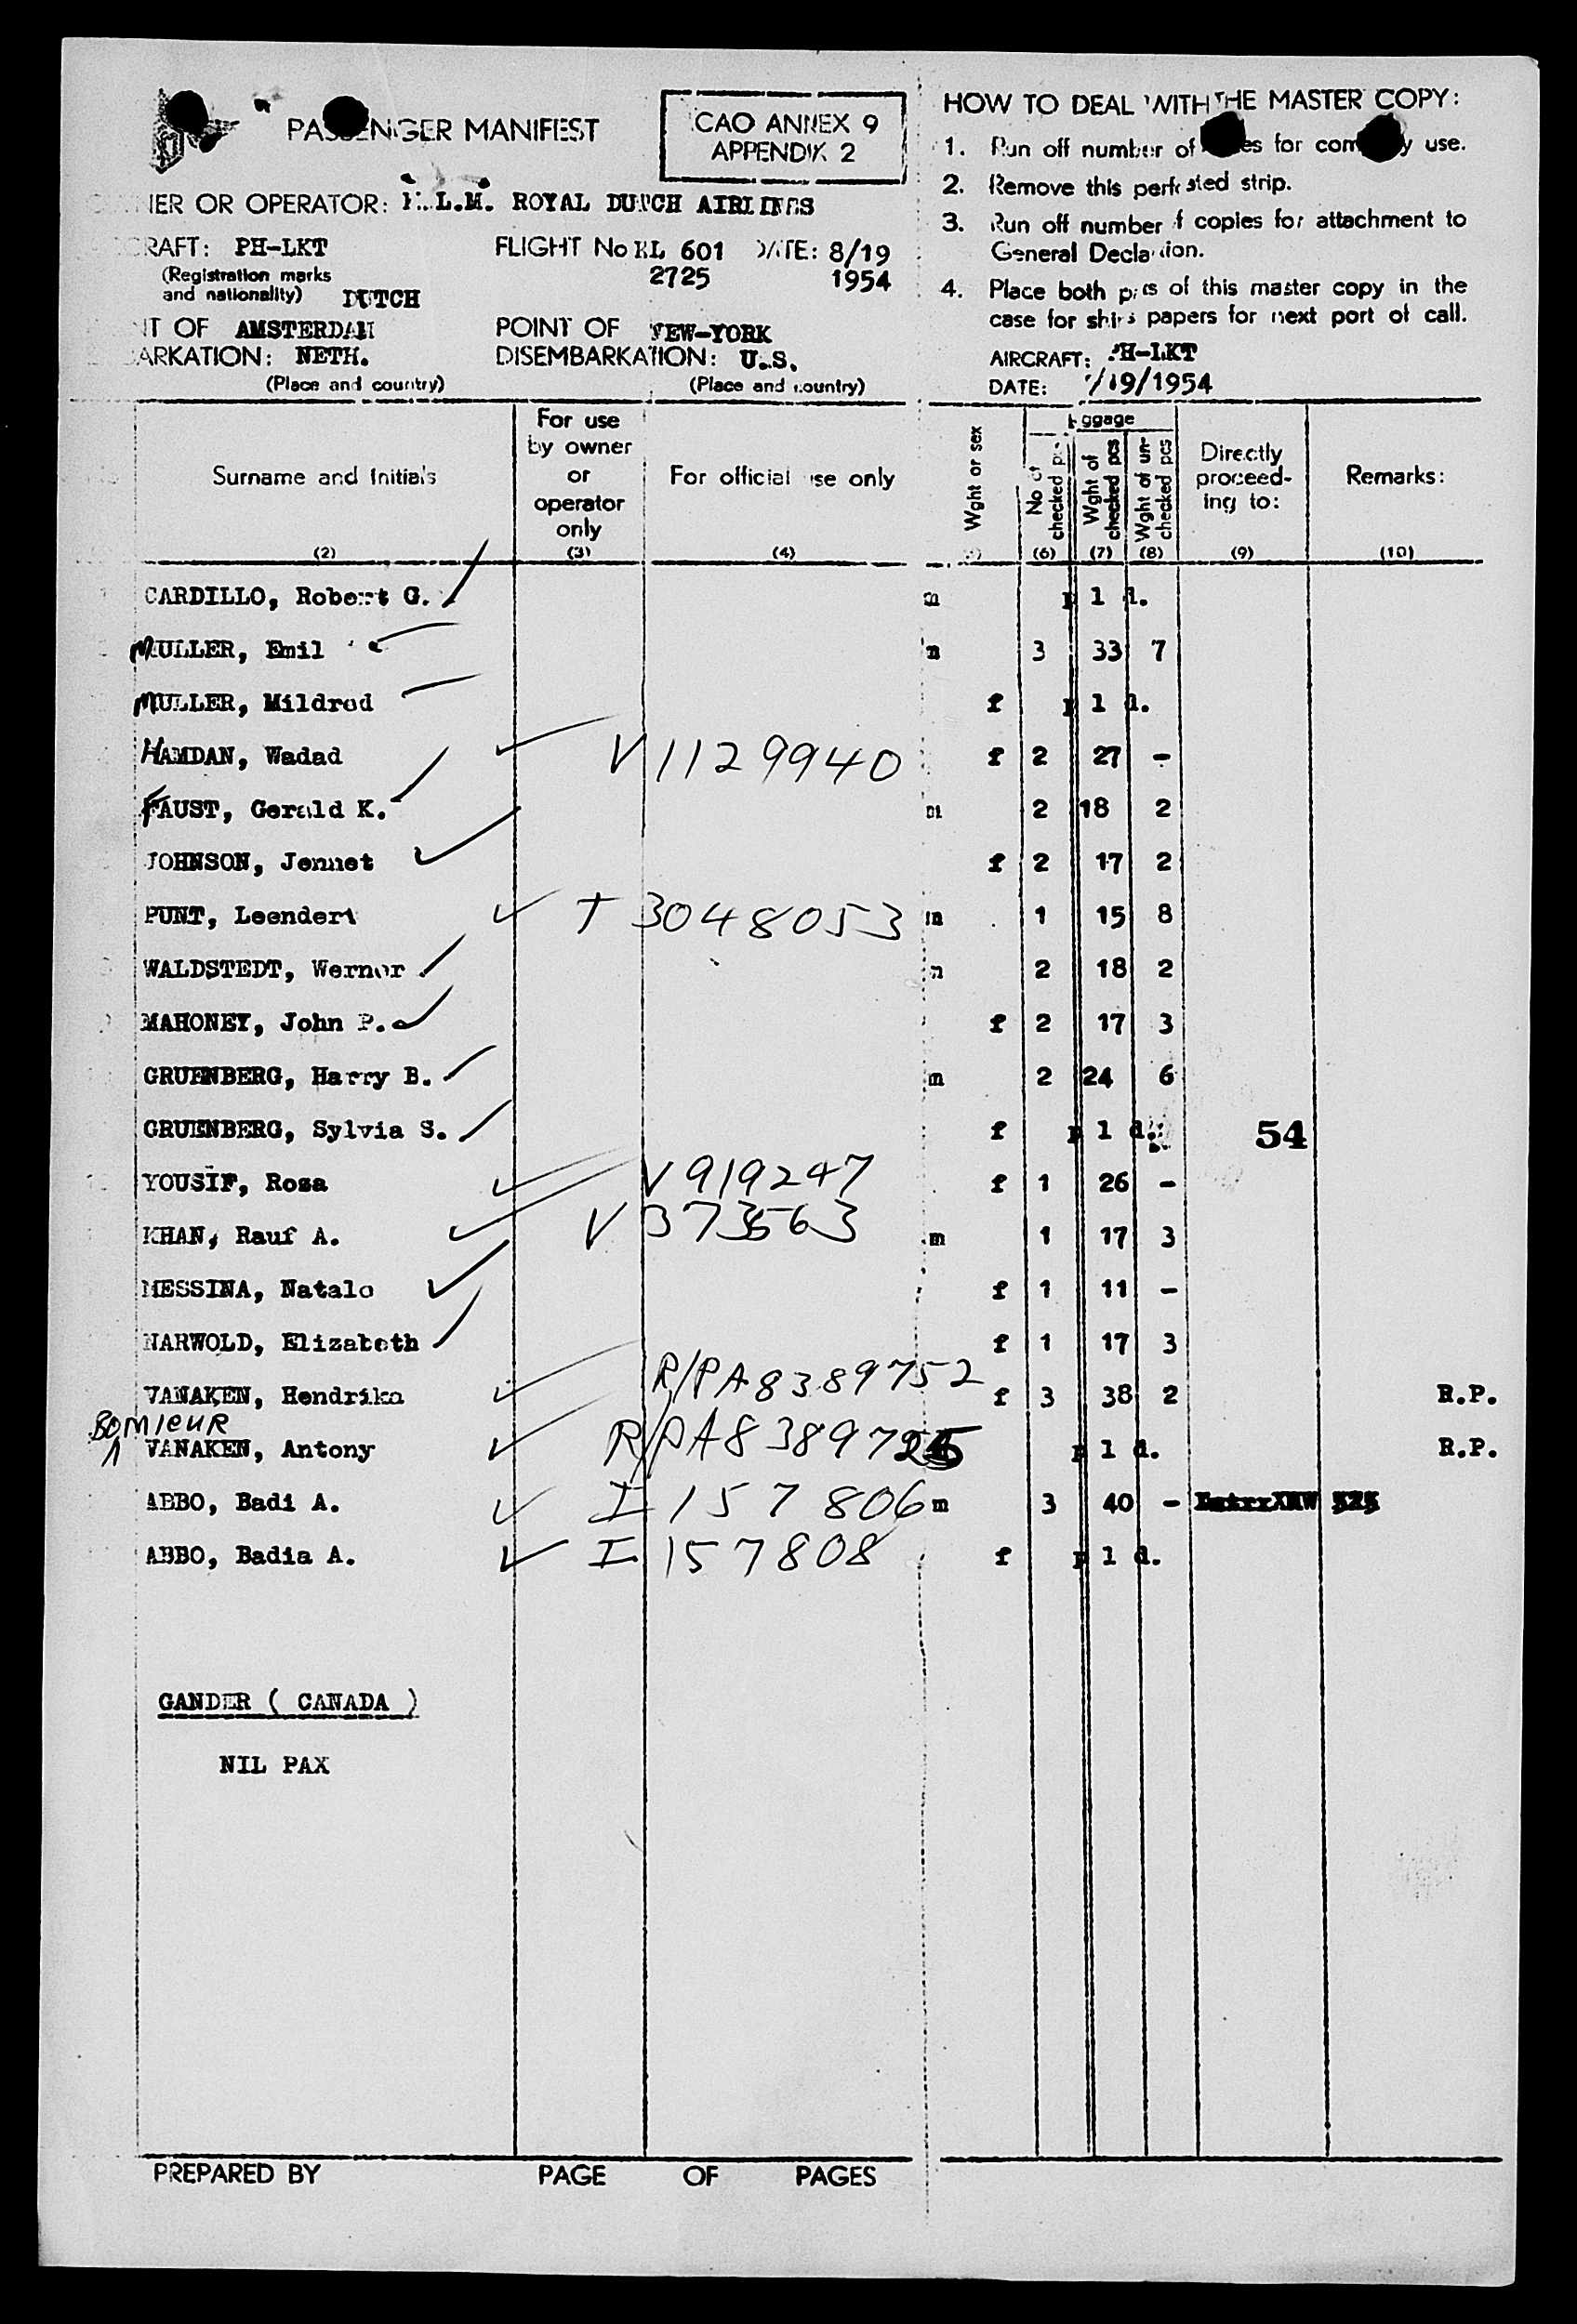 PASSENGER MANIFEST
CAO ANNEX 9
APPENDIX 2
HOW TO DEAL WITH THE MASTER COPY:
1. Run off number of for company use.
2. Remove this strip.
3. Run off number of copies for attachment to
General Declaration.
4. Place both of this master copy in the
case for ships papers for next port of call.
AIRCRAFT: PH-LKT
DATE: /19/1954
OR OPERATOR: K.L.M. ROYAL DUTCH AIRLINES
CRAFT: PH-LKT
(Registration marks
and nationality) DUTCH
FLIGHT No KL 601 DATE: 8/19
2725 1954
OF AMSTERDAM
ARKATION: NETH.
(Place and country)
POINT OF NEW-YORK
DISEMBARKATION: U.S.
(Place and country)
Surname and Initials
(2)
For use
by owner
or
operator
only
(3)
For official use only
(4)
Wght or sex
No of
checked pcs
(6)
Wght of
checked pcs
(7)
Wght of un-
checked pcs
(8)
Directly
proceed-
ing to:
(9)
Remarks:
(10)
CARDILLO, Robert G. m p 1 d.
MULLER, Emil m 3 33 7
MULLER, Mildred f p 1 d.
HAMDAN, Wadad V 1129940 f 2 27 -
FAUST, Gerald K. m 2 18 2
JOHNSON, Jennet f 2 17 2
PUNT, Leendert T 3048053 m 1 15 8
WALDSTEDT, Werner m 2 18 2
MAHONEY, John P. f 2 17 3
GRUENBERG, Harry B. m 2 24 6
GRUENBERG, Sylvia S. f p 1 d. 54
YOUSIF, Rosa V 919247 f 1 26 -
KHAN, Rauf A. V 373563 m 1 17 3
MESSINA, Natale f 1 11 -
NARWOLD, Elizabeth f 1 17 3
VANAKEN, Hendrika R/P A8389752 f 3 38 2 R.P.
BOMIEUR
VANAKEN, Antony R/P A8389725 p 1 d. R.P.
ABBO, Badi A. I 157806 m 3 40 -
ABBO, Badia A. I 157808 f p 1 d.
GANDER ( CANADA )
NIL PAX
PREPARED BY PAGE OF PAGES